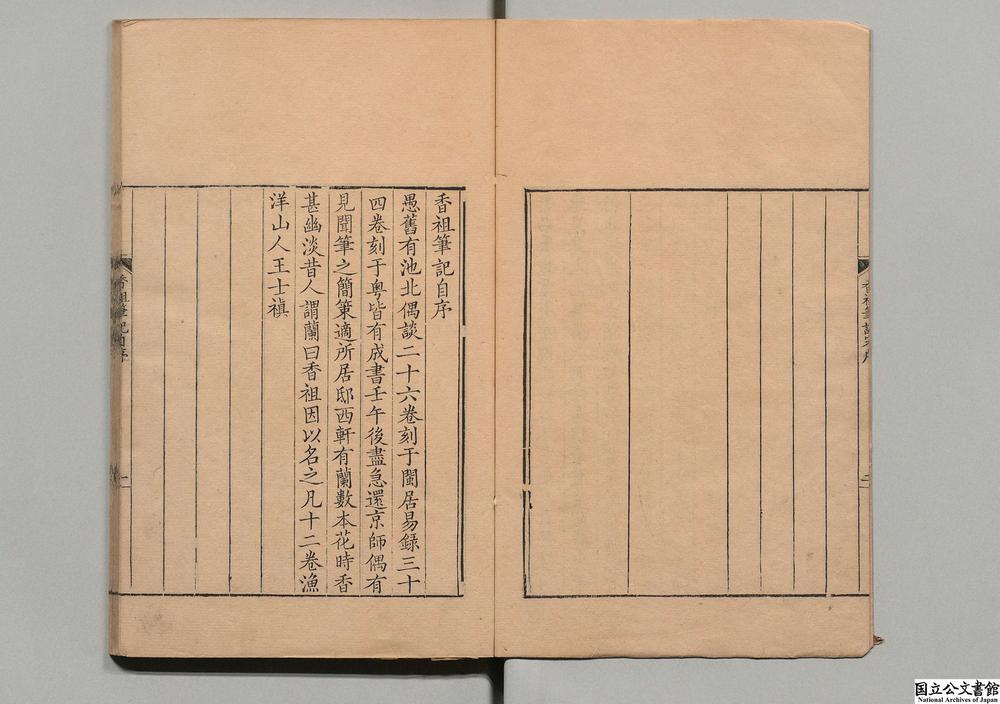 香祖筆記自序
愚舊有池北偶談二十六卷刻于閩居易錄三十
四卷刻于粵皆有成書壬午後盡急還京師偶有
見聞筆之簡策適所居邸西軒有蘭數本花時香
甚幽淡昔人謂蘭曰香祖因以名之凡十二卷漁
洋山人王士禛
香祖筆記自序
一
二
国立公文書館
National Archives of Japan